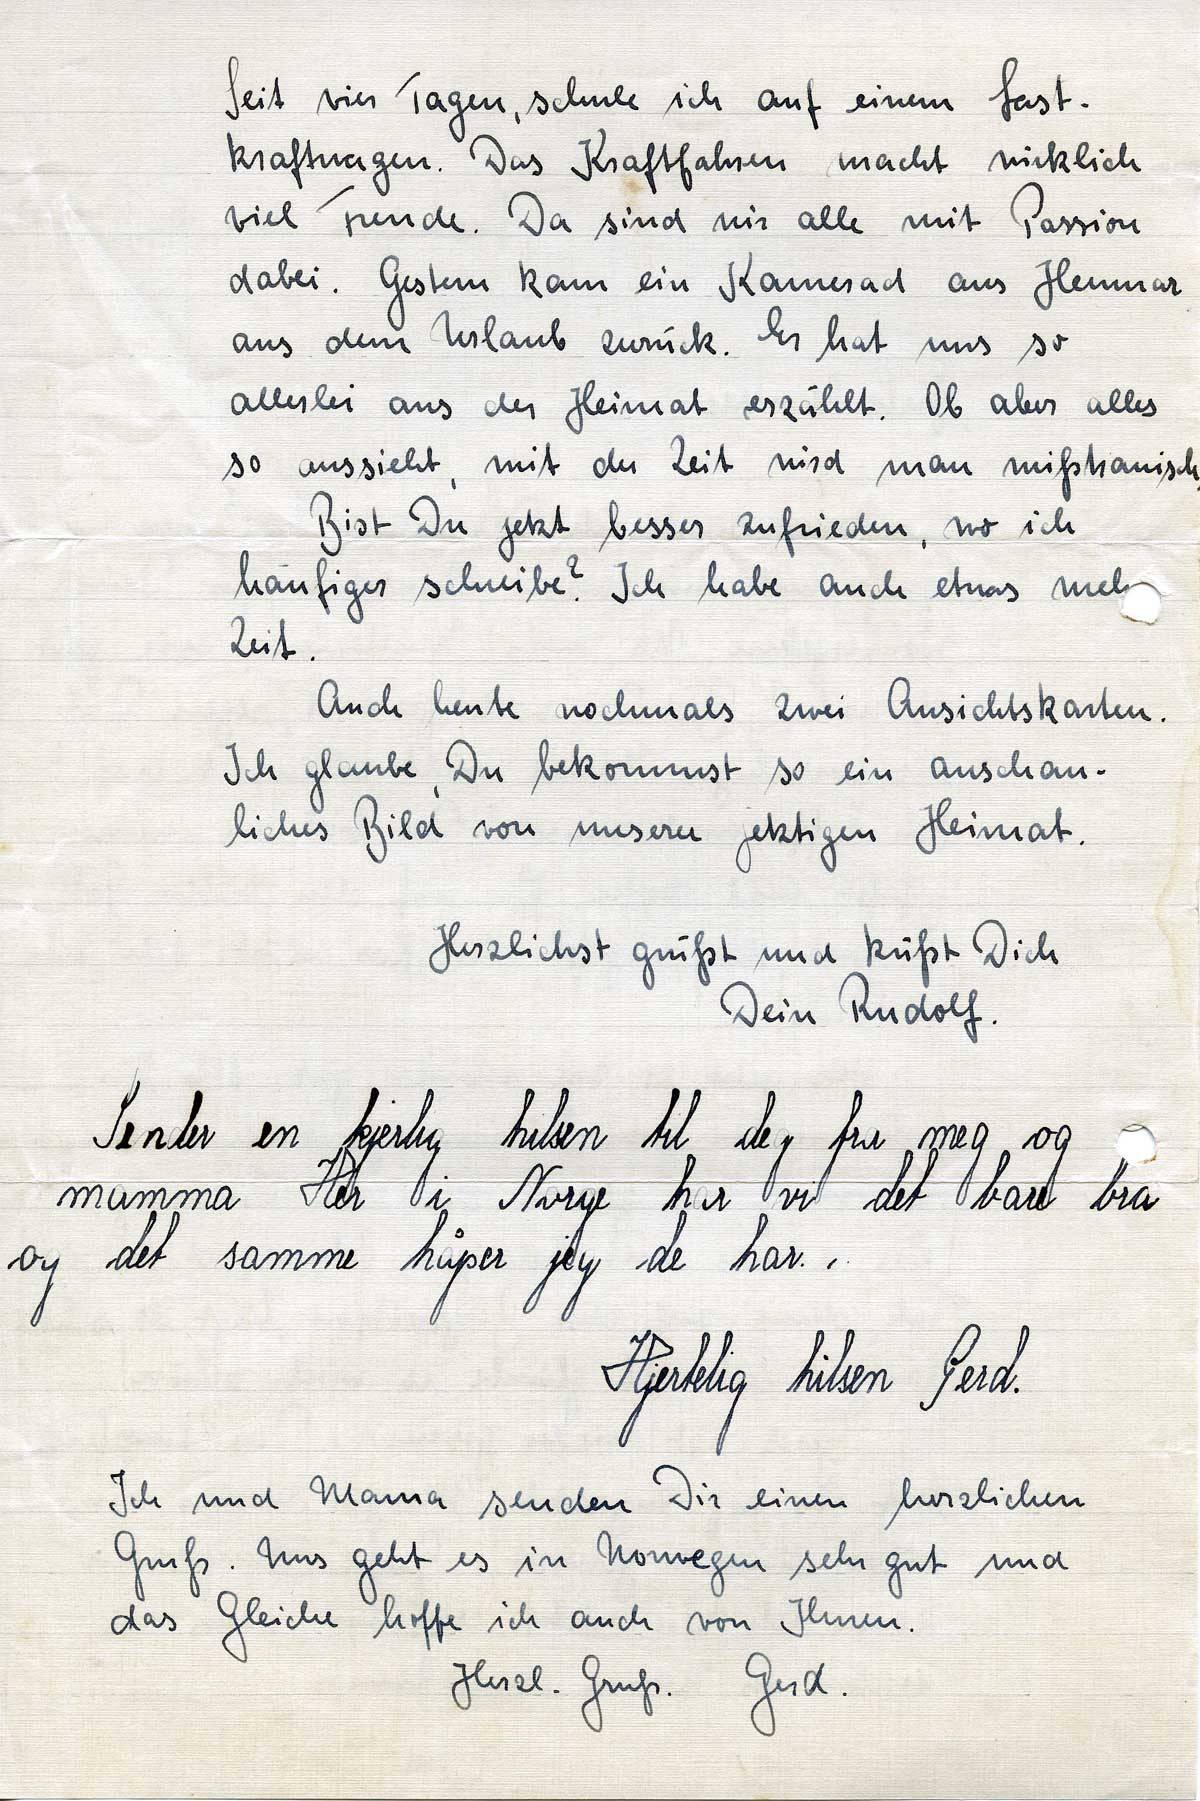 Seit vier Tagen, schule ich auf einem Last-
kraftwagen. Das Kraftfahren macht wirklich
viel Freude. Da sind wir alle mit Passion
dabei. Gestern kam ein Kamerad aus
aus dem Urlaub zurück. Er hat uns so
allerlei aus der Heimat erzählt. Ob aber alles
so aussieht, mit der Zeit wird man mißtrauisch,
Bist Du jetzt besser zufrieden, wo ich
häufiger schreibe? Ich habe auch etwas mehr
Zeit.
Auch heute nochmals zwei Ansichtskarten.
Ich glaube, Du bekommst so ein anschau-
liches Bild von unserer jetztigen Heimat.
Herzlichst grüßt und küßt Dich
Dein Rudolf.
Sender en kjerlig hilsen til deg fra meg og
mamma Her i Norge har vi det bare bra
og det samme håper jeg de har..
Hjertelig hilsen Gerd.
Ich und Mama senden Dir einen herzlichen
Gruß. Uns geht es in Norwegen sehr gut und
das Gleiche hoffe ich auch von Ihnen.
Herzl. Gruß. Gerd.